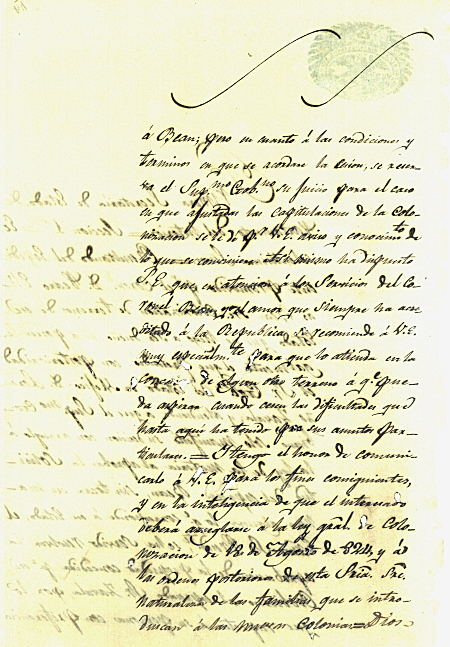 á Bean; pero en cuanto á las condiciones y
terminos en que se acordare la cesion, se reser-
va el Sup.mo Gob.no su juicio para el caso
en que ajustadas las capitulaciones de la Colo-
nizacion se le dé p.r V.E. aviso y conocim.to
de lo que se conviniere. Así mismo ha dispuesto
S.E. que en atencion á los Servicios del Co-
ronel Bean, y el amor que siempre ha acre-
ditado á la Republica, se recomiende á V.E.
muy especialm.te para que lo atienda en la
concesion de algun otro terreno a q.e pue-
da aspirar cuando cesen las dificultades que
hasta aqui ha tenido para sus asuntos par-
ticulares.=Y tengo el honor de comuni-
carlo á V.E. para los fines consiguientes,
y en la inteligencia de que el interesado
deberá arreglarse á la ley gral. de Colo-
nizacion de 18 de Agosto de 824, y á
las ordenes posteriores de esta Sria. Sre.
naturaleza de las familias que se intro-
duscan á las nuevas Colonias.=Dios